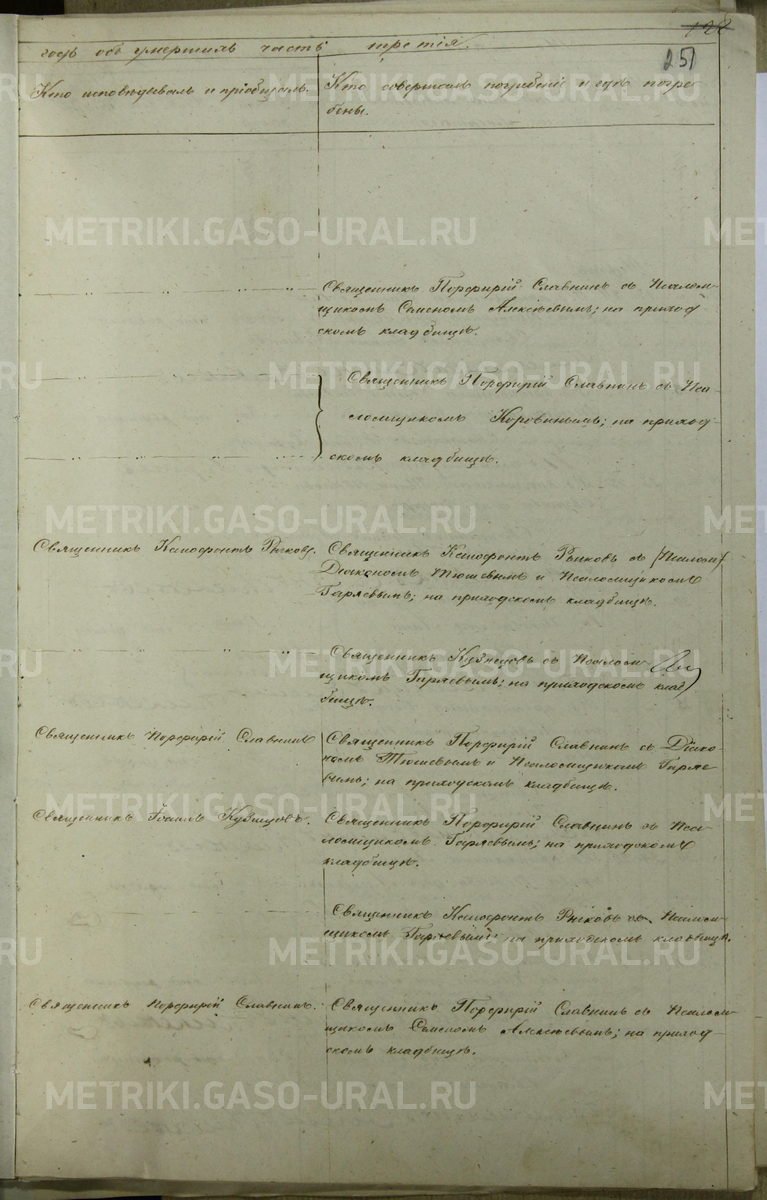 годъ объ умершихъ часть третія.
251
Кто исповѣдывалъ и пріобщалъ.
Кто совершалъ погребеніе и гдѣ погре-
бены.
METRIKI.GASO-URAL.RU
Священникъ Порфирій Славнинъ съ Псалом-
щикомъ Семеномъ Алексѣевымъ; на приход-
скомъ кладбищѣ.
Священникъ Порфирій Славнинъ съ Пса-
ломщикомъ Коровинымъ; на приход-
скомъ кладбищѣ.
Священникъ Ксенофонтъ Рычковъ.
Священникъ Ксенофонтъ Рычковъ съ (Псалом)
Діакономъ Тюшевымъ и Псаломщикомъ
Гаряевымъ; на приходскомъ кладбищѣ.
Священникъ Кузнецовъ съ Псалом-
щикомъ Гаряевымъ; на приходскомъ клад-
бищѣ.
Священникъ Порфирій Славнинъ
Священникъ Порфирій Славнинъ съ Діако-
номъ Тюшевымъ и Псаломщикомъ Гаряе-
вымъ; на приходскомъ кладбищѣ.
Священникъ Іоаннъ Кузнецовъ.
Священникъ Порфирій Славнинъ съ Пса-
ломщикомъ Гаряевымъ; на приходскомъ
кладбищѣ.
Священникъ Ксенофонтъ Рычковъ съ Псалом-
щикомъ Гаряевымъ на приходскомъ кладбищѣ.
Священникъ Порфирій Славнинъ.
Священникъ Порфирій Славнинъ съ Псалом-
щикомъ Семеномъ Алексѣевымъ; на приход-
скомъ кладбищѣ.